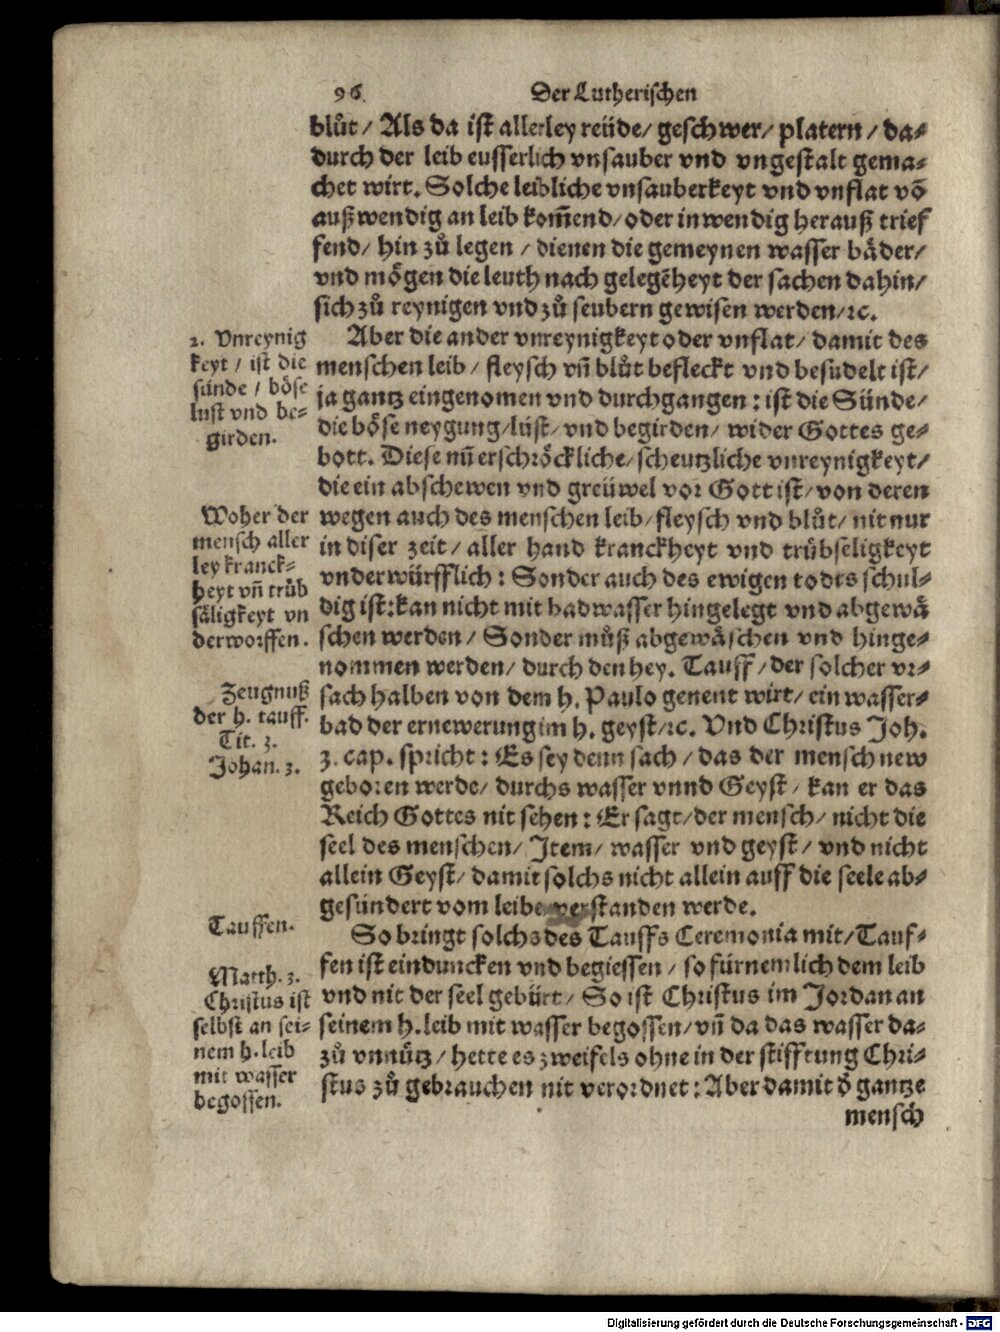 96.
Der Lutherischen
blůt / Als da ist allerley reüde / geschwer / platern / da-
durch der leib eusserlich vnsauber vnd vngestalt gema-
chet wirt. Solche leibliche vnsauberkeyt vnd vnflat võ
außwendig an leib kom̃end / oder inwendig herauß trief
fend / hin zů legen / dienen die gemeynen wasser båder /
vnd mőgen die leuth nach gelegẽheyt der sachen dahin /
sich zů reynigen vnd zů seubern gewisen werden / ꝛc.
2. Vnreynig
keyt / ist die
sünde / böse
lust vnd be-
girden.
Aber die ander vnreynigkeyt oder vnflat / damit des
menschen leib / fleysch vñ blůt befleckt vnd besudelt ist /
ja gantz eingenomen vnd durchgangen : ist die Sünde /
die böse neygung / lüst / vnd begirden / wider Gottes ge-
bott. Diese nũ erschröckliche / scheutzliche vnreynigkeyt /
die ein abschewen vnd greüwel vor Gott ist / von deren
Woher der
mensch aller
ley kranck-
heyt vñ trůb
såligkeyt vn
derworffen.
wegen auch des menschen leib / fleysch vnd blůt / nit nur
in diser zeit / aller hand kranckheyt vnd trůbseligkeyt
vnderwürfflich : Sonder auch des ewigen todts schul-
dig ist : kan nicht mit badwasser hingelegt vnd abgewå
schen werden / Sonder můß abgewåschen vnd hinge-
nommen werden / durch den hey. Tauff / der solcher vr-
Zeugnuß
der h. tauff.
Tit. 3.
Johan. 3.
sach halben von dem h. Paulo genent wirt / ein wasser-
bad der ernewerung im h. geyst / ꝛc. Vnd Christus Joh.
3. cap. spricht : Es sey denn sach / das der mensch new
geboren werde / durchs wasser vnnd Geyst / kan er das
Reich Gottes nit sehen : Er sagt / der mensch / nicht die
seel des menschen / Item / wasser vnd geyst / vnd nicht
allein Geyst / damit solchs nicht allein auff die seele ab-
gesündert vom leibe verstanden werde.
Tauffen.
So bringt solchs des Tauffs Ceremonia mit / Tauf-
fen ist eindůncken vnd begiessen / so fürnemlich dem leib
Matth. 3.
Christus ist
selbst an sei-
nem h. leib
mit wasser
begossen.
vnd nit der seel gebürt / So ist Christus im Jordan an
seinem h. leib mit wasser begossen / vñ da das wasser da-
zů vnnütz / hette es zweifels ohne in der stifftung Chri-
stus zů gebrauchen nit verordnet : Aber damit ð gantze
mensch
Digitalisierung gefördert durch die Deutsche Forschungsgemeinschaft - DFG